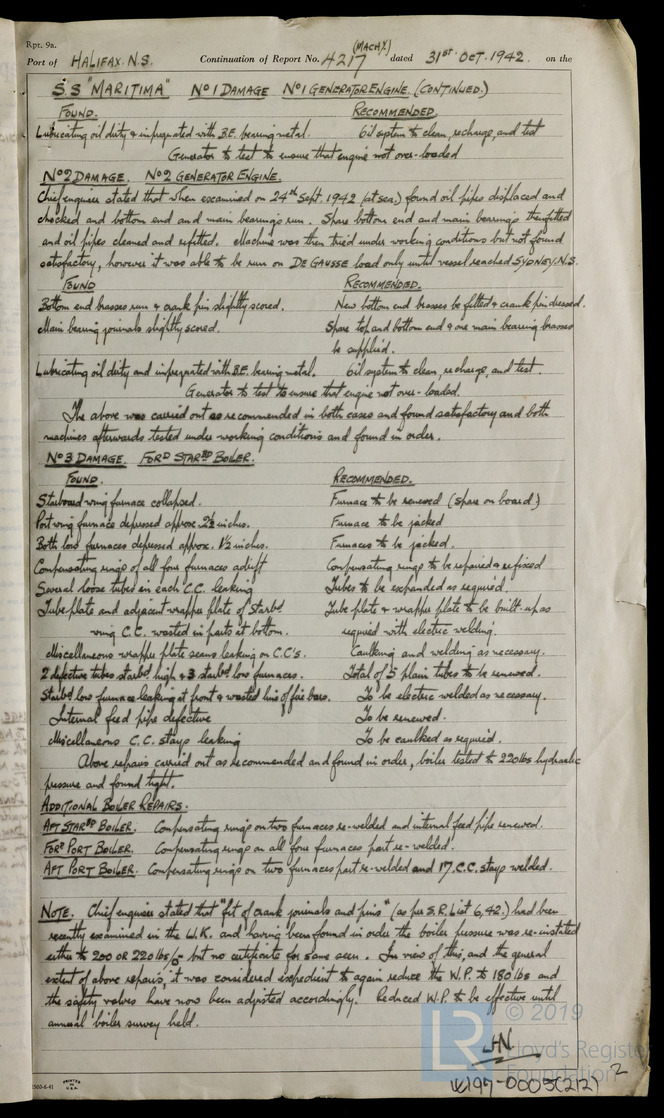 Rpt. 9a.
Port of HALIFAX. N.S. Continuation of Report No. 4217 (MACHY.) dated 31ST OCT. 1942. on the
S.S "MARITIMA" No 1 DAMAGE No 1 GENERATOR ENGINE. (CONTINUED.)
FOUND. RECOMMENDED
Lubricating oil dirty & impregnated with B.E. bearing metal. Oil system to clean, recharge, and test
Generator to test to ensure that engine not over-loaded
No 2 DAMAGE. No 2 GENERATOR ENGINE.
Chief engineer stated that when examined on 24th Sept. 1942 (at sea) found oil pipes displaced and
choked and bottom end and main bearings run. Spare bottom end and main bearings then fitted
and oil pipes cleaned and refitted. Machine was then tried under working conditions but not found
satisfactory, however it was able to be run on DE GAUSSE load only until vessel reached SYDNEY. N.S.
FOUND RECOMMENDED.
Bottom end brasses run & crank pin slightly scored. New bottom end brasses be fitted & crank pin dressed.
Main bearing journals slightly scored. Spare top and bottom end & one main bearing brasses
be supplied.
Lubricating oil dirty and impregnated with B.E. bearing metal. Oil system to clean, recharge, and test.
Generator to test to ensure that engine not over-loaded.
The above was carried out as recommended in both cases and found satisfactory and both
machines afterwards tested under working conditions and found in order.
No 3 DAMAGE. FORD STARBD BOILER.
FOUND. RECOMMENDED.
Starboard wing furnace collapsed. Furnace to be renewed (spare on board)
Port wing furnace depressed approx. 2½ inches. Furnace to be jacked
Both low furnaces depressed approx. 1½ inches. Furnaces to be jacked.
Compensating rings of all four furnaces adrift Compensating rings to be repaired & refixed
Several loose tubes in each C.C. leaking Tubes to be expanded as required.
Tube plate and adjacent wrapper plate of Starbd Tube plate & wrapper plate to be built-up as
wing C.C. wasted in parts at bottom. required with electric welding.
Miscellaneous wrapper plate seams leaking on C.C's. Caulking and welding as necessary.
2 defective tubes starbd high & 3 starbd low furnaces. Total of 5 plain tubes to be renewed.
Starbd low furnace leaking at front & wasted line of fire bars. To be electric welded as necessary.
Internal feed pipe defective To be renewed.
Miscellaneous C.C. stays leaking To be caulked as required.
Above repairs carried out as recommended and found in order, boiler tested to 220 lbs hydraulic
pressure and found tight.
ADDITIONAL BOILER REPAIRS.
AFT STARBD BOILER. Compensating rings on two furnaces re-welded and internal feed pipe renewed.
FORD PORT BOILER. Compensating rings on all four furnaces part re-welded.
AFT PORT BOILER. Compensating rings on two furnaces part re-welded and 17 C.C. stays welded.
NOTE. Chief engineer stated that "fit of crank journals and pins" (as per S.R. List 6,42.) had been
recently examined in the U.K. and having been found in order the boiler pressure was re-instated
either to 200 or 220 lbs/□" but no certificate for same seen. In view of this, and the general
extent of above repairs, it was considered expedient to again reduce the W.P. to 180 lbs and
the safety valves have now been adjusted accordingly. Reduced W.P. to be effective until
annual boiler survey held.
© 2019
LR Lloyd's Register
Foundation
W197-0005(2/2) 2
PRINTED IN U.S.A.